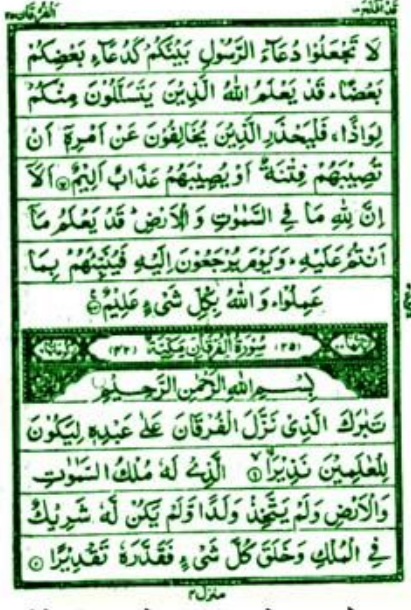 قد افلح ١٨
الفرقان ٢٥
لَا تَجْعَلُوْا دُعَآءَ الرَّسُوْلِ بَيْنَكُمْ كَدُعَآءِ بَعْضِكُمْ
بَعْضًا ؕ قَدْ يَعْلَمُ اللّٰهُ الَّذِيْنَ يَتَسَلَّلُوْنَ مِنْكُمْ
لِوَاذًا ۚ فَلْيَحْذَرِ الَّذِيْنَ يُخَالِفُوْنَ عَنْ اَمْرِهٖۤ اَنْ
تُصِيْبَهُمْ فِتْنَةٌ اَوْ يُصِيْبَهُمْ عَذَابٌ اَلِيْمٌ اَلَاۤ
اِنَّ لِلّٰهِ مَا فِي السَّمٰوٰتِ وَ الْاَرْضِ ؕ قَدْ يَعْلَمُ مَاۤ
اَنْتُمْ عَلَيْهِ ؕ وَيَوْمَ يُرْجَعُوْنَ اِلَيْهِ فَيُنَبِّئُهُمْ بِمَا
عَمِلُوْا ؕ وَ اللّٰهُ بِكُلِّ شَيْءٍ عَلِيْمٌ
(٢٥) سُوْرَةُ الْفُرْقَانِ مَكِّيَّةٌ (٤٢)
بِسْمِ اللّٰهِ الرَّحْمٰنِ الرَّحِيْمِ
تَبٰرَكَ الَّذِيْ نَزَّلَ الْفُرْقَانَ عَلٰى عَبْدِهٖ لِيَكُوْنَ
لِلْعٰلَمِيْنَ نَذِيْرًا ۙ ١ الَّذِيْ لَهٗ مُلْكُ السَّمٰوٰتِ
وَالْاَرْضِ وَلَمْ يَتَّخِذْ وَلَدًا وَّلَمْ يَكُنْ لَّهٗ شَرِيْكٌ
فِي الْمُلْكِ وَخَلَقَ كُلَّ شَيْءٍ فَقَدَّرَهٗ تَقْدِيْرًا
منزل ٤